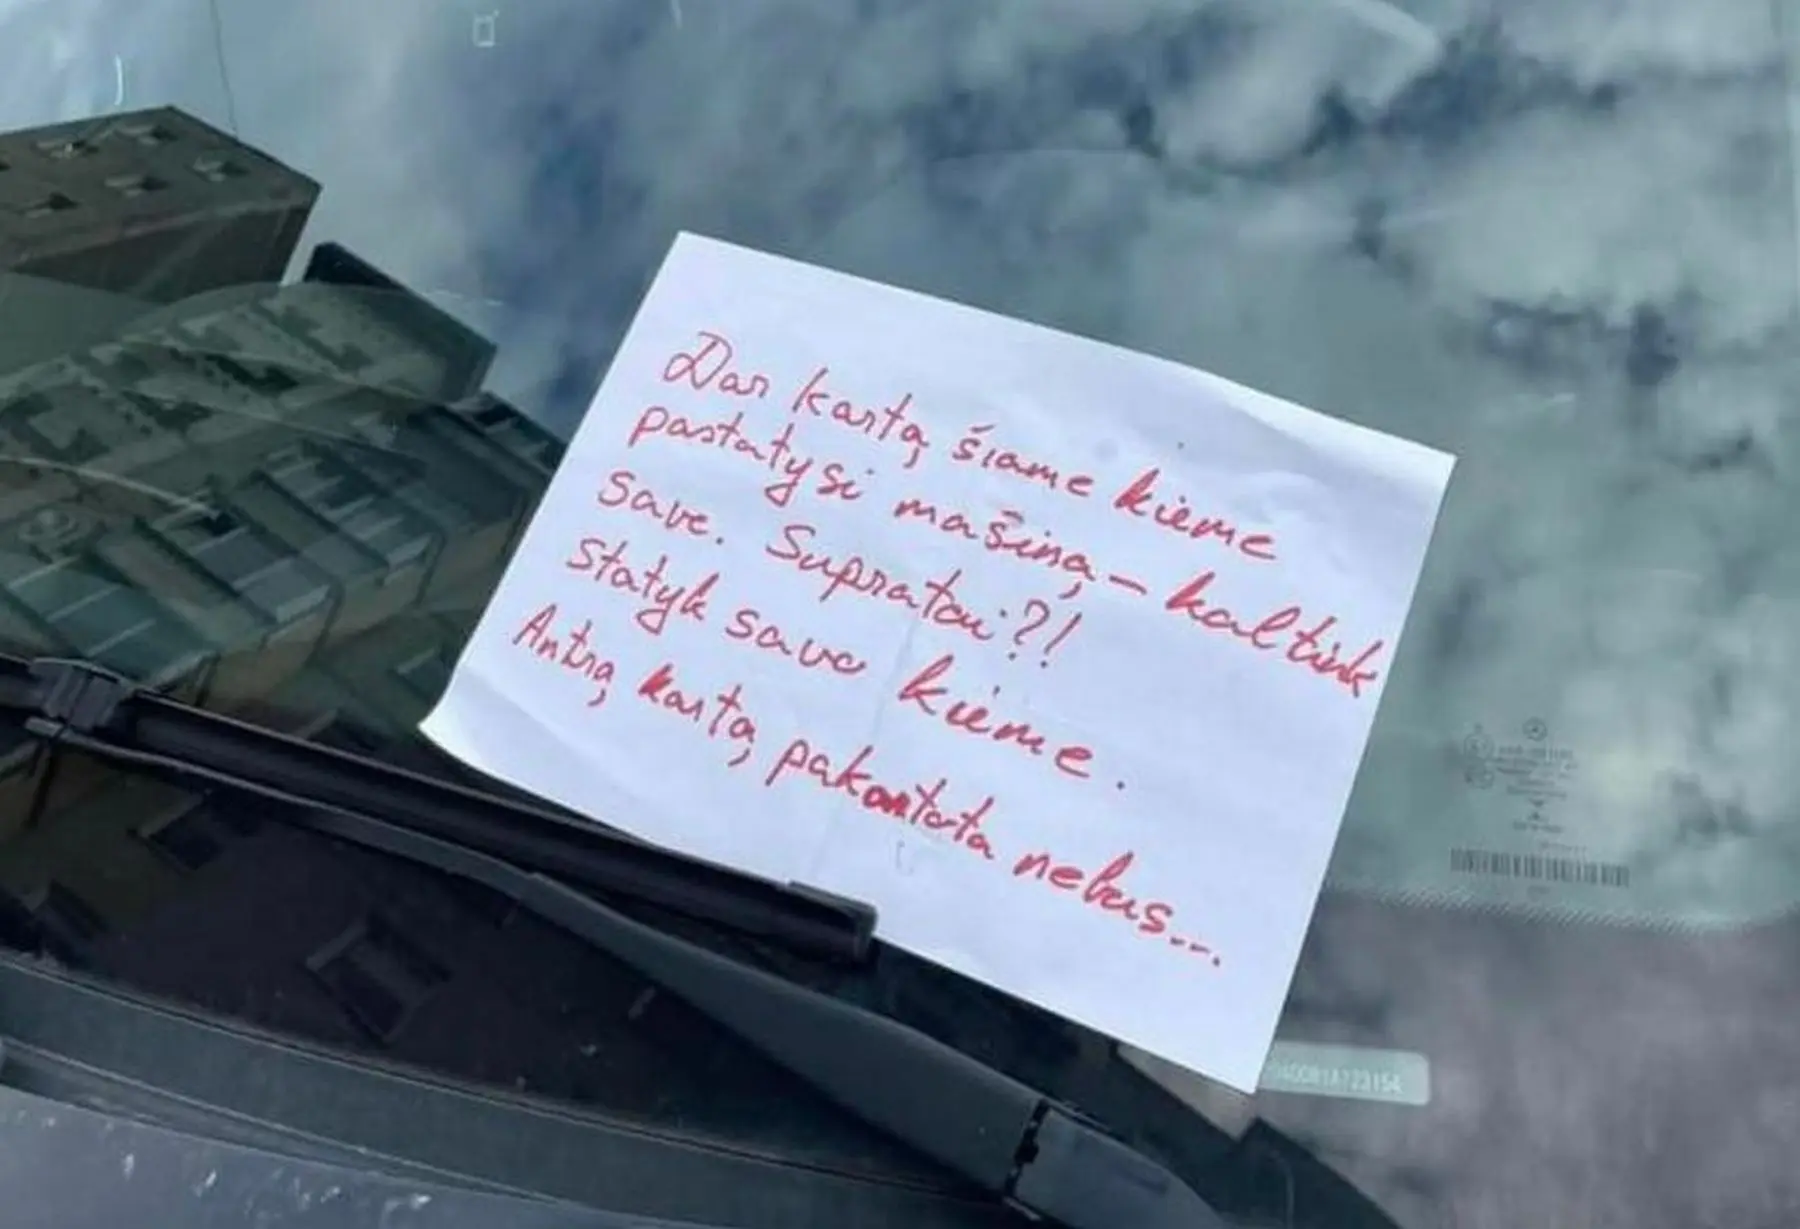 Dar kartą šiame kieme
pastatysi mašiną - kaltink
save. Supratai?!
Statyk savo kieme.
Antrą kartą pakartota nebus...